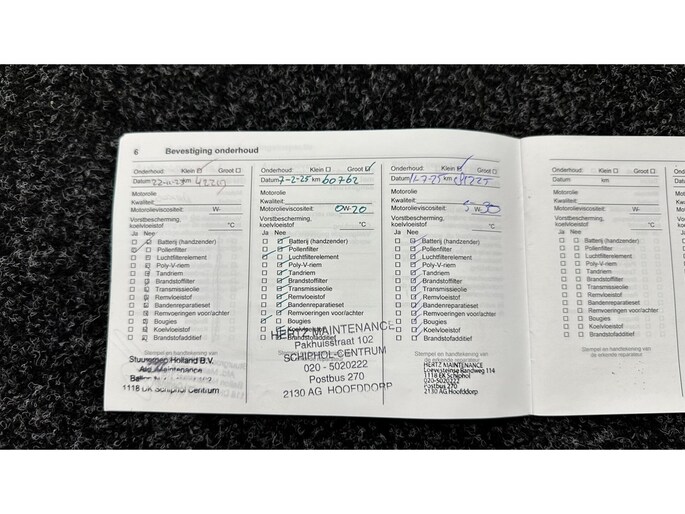 6 Bevestiging onderhoud
Onderhoud: Klein Groot
Datum km
Motorolie
Kwaliteit:
Motorolieviscositeit: °C
Vorstbescherming,
koelvloeistof °C
Ja Nee
Batterij (handzender)
Pollenfilter
Luchtfilterelement
Poly-V-riem
Tandriem
Brandstoffilter
Transmissieolie
Remvloeistof
Bandenreparatieset
Remvoeringen voor/achter
Bougies
Koelvloeistof
Brandstofadditief
Stempel en handtekening van
Holland B.V.
Maintenance
1118 LK Schiphol Centrum
Onderhoud: Klein Groot
Datum 7-2-25 km 60762
Motorolie
Kwaliteit:
Motorolieviscositeit: 0W-20
Vorstbescherming,
koelvloeistof °C
Ja Nee
Batterij (handzender)
Pollenfilter
Luchtfilterelement
Poly-V-riem
Tandriem
Brandstoffilter
Transmissieolie
Remvloeistof
Bandenreparatieset
Remvoeringen voor/achter
Bougies
Koelvloeistof
HERTZ MAINTENANCE
Pakhuisstraat 102
SCHIPHOL-CENTRUM
020 - 5020222
Postbus 270
2130 AG HOOFDDORP
Onderhoud: Klein Groot
Datum 1-7-25 km
Motorolie
Kwaliteit:
Motorolieviscositeit: 5 W-30
Vorstbescherming,
koelvloeistof °C
Ja Nee
Batterij (handzender)
Pollenfilter
Luchtfilterelement
Poly-V-riem
Tandriem
Brandstoffilter
Transmissieolie
Remvloeistof
Bandenreparatieset
Remvoeringen voor/achter
Bougies
Koelvloeistof
Brandstofadditief
Stempel en handtekening van
de erkende reparateur
HERTZ MAINTENANCE
Loevesteinse Randweg 114
1118 EK Schiphol
020-5020222
Postbus 270
2130 AG Hoofddorp
Onderhoud: Klein Groot
Datum km
Motorolie
Kwaliteit:
Motorolieviscositeit:
Vorstbescherming,
koelvloeistof °C
Ja Nee
Batterij (handzender)
Pollenfilter
Luchtfilterelement
Poly-V-riem
Tandriem
Brandstoffilter
Transmissieolie
Remvloeistof
Bandenreparatieset
Remvoeringen voor/achter
Bougies
Koelvloeistof
Brandstofadditief
Stempel en handtekening van
de erkende reparateur